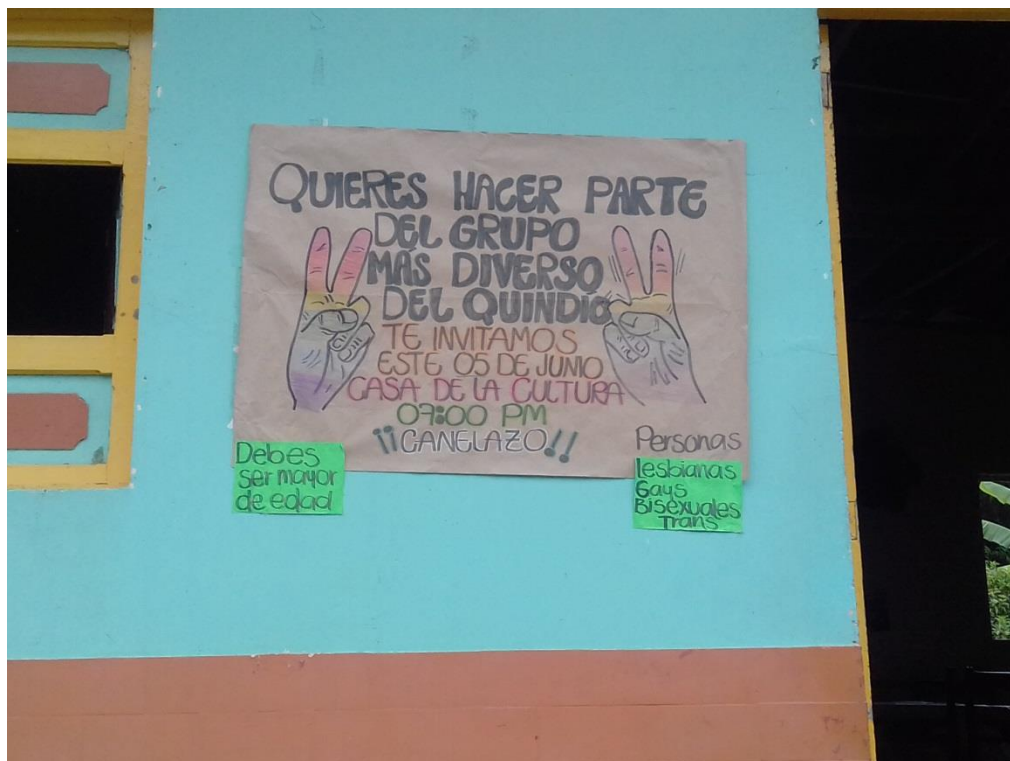 QUIERES HACER PARTE
DEL GRUPO
MAS DIVERSO
DEL QUINDIO
TE INVITAMOS
ESTE 05 DE JUNIO
CASA DE LA CULTURA
07:00 PM
¡¡CANELAZO!!
Debes
ser mayor
de edad
Personas
lesbianas
Gays
Bisexuales
Trans